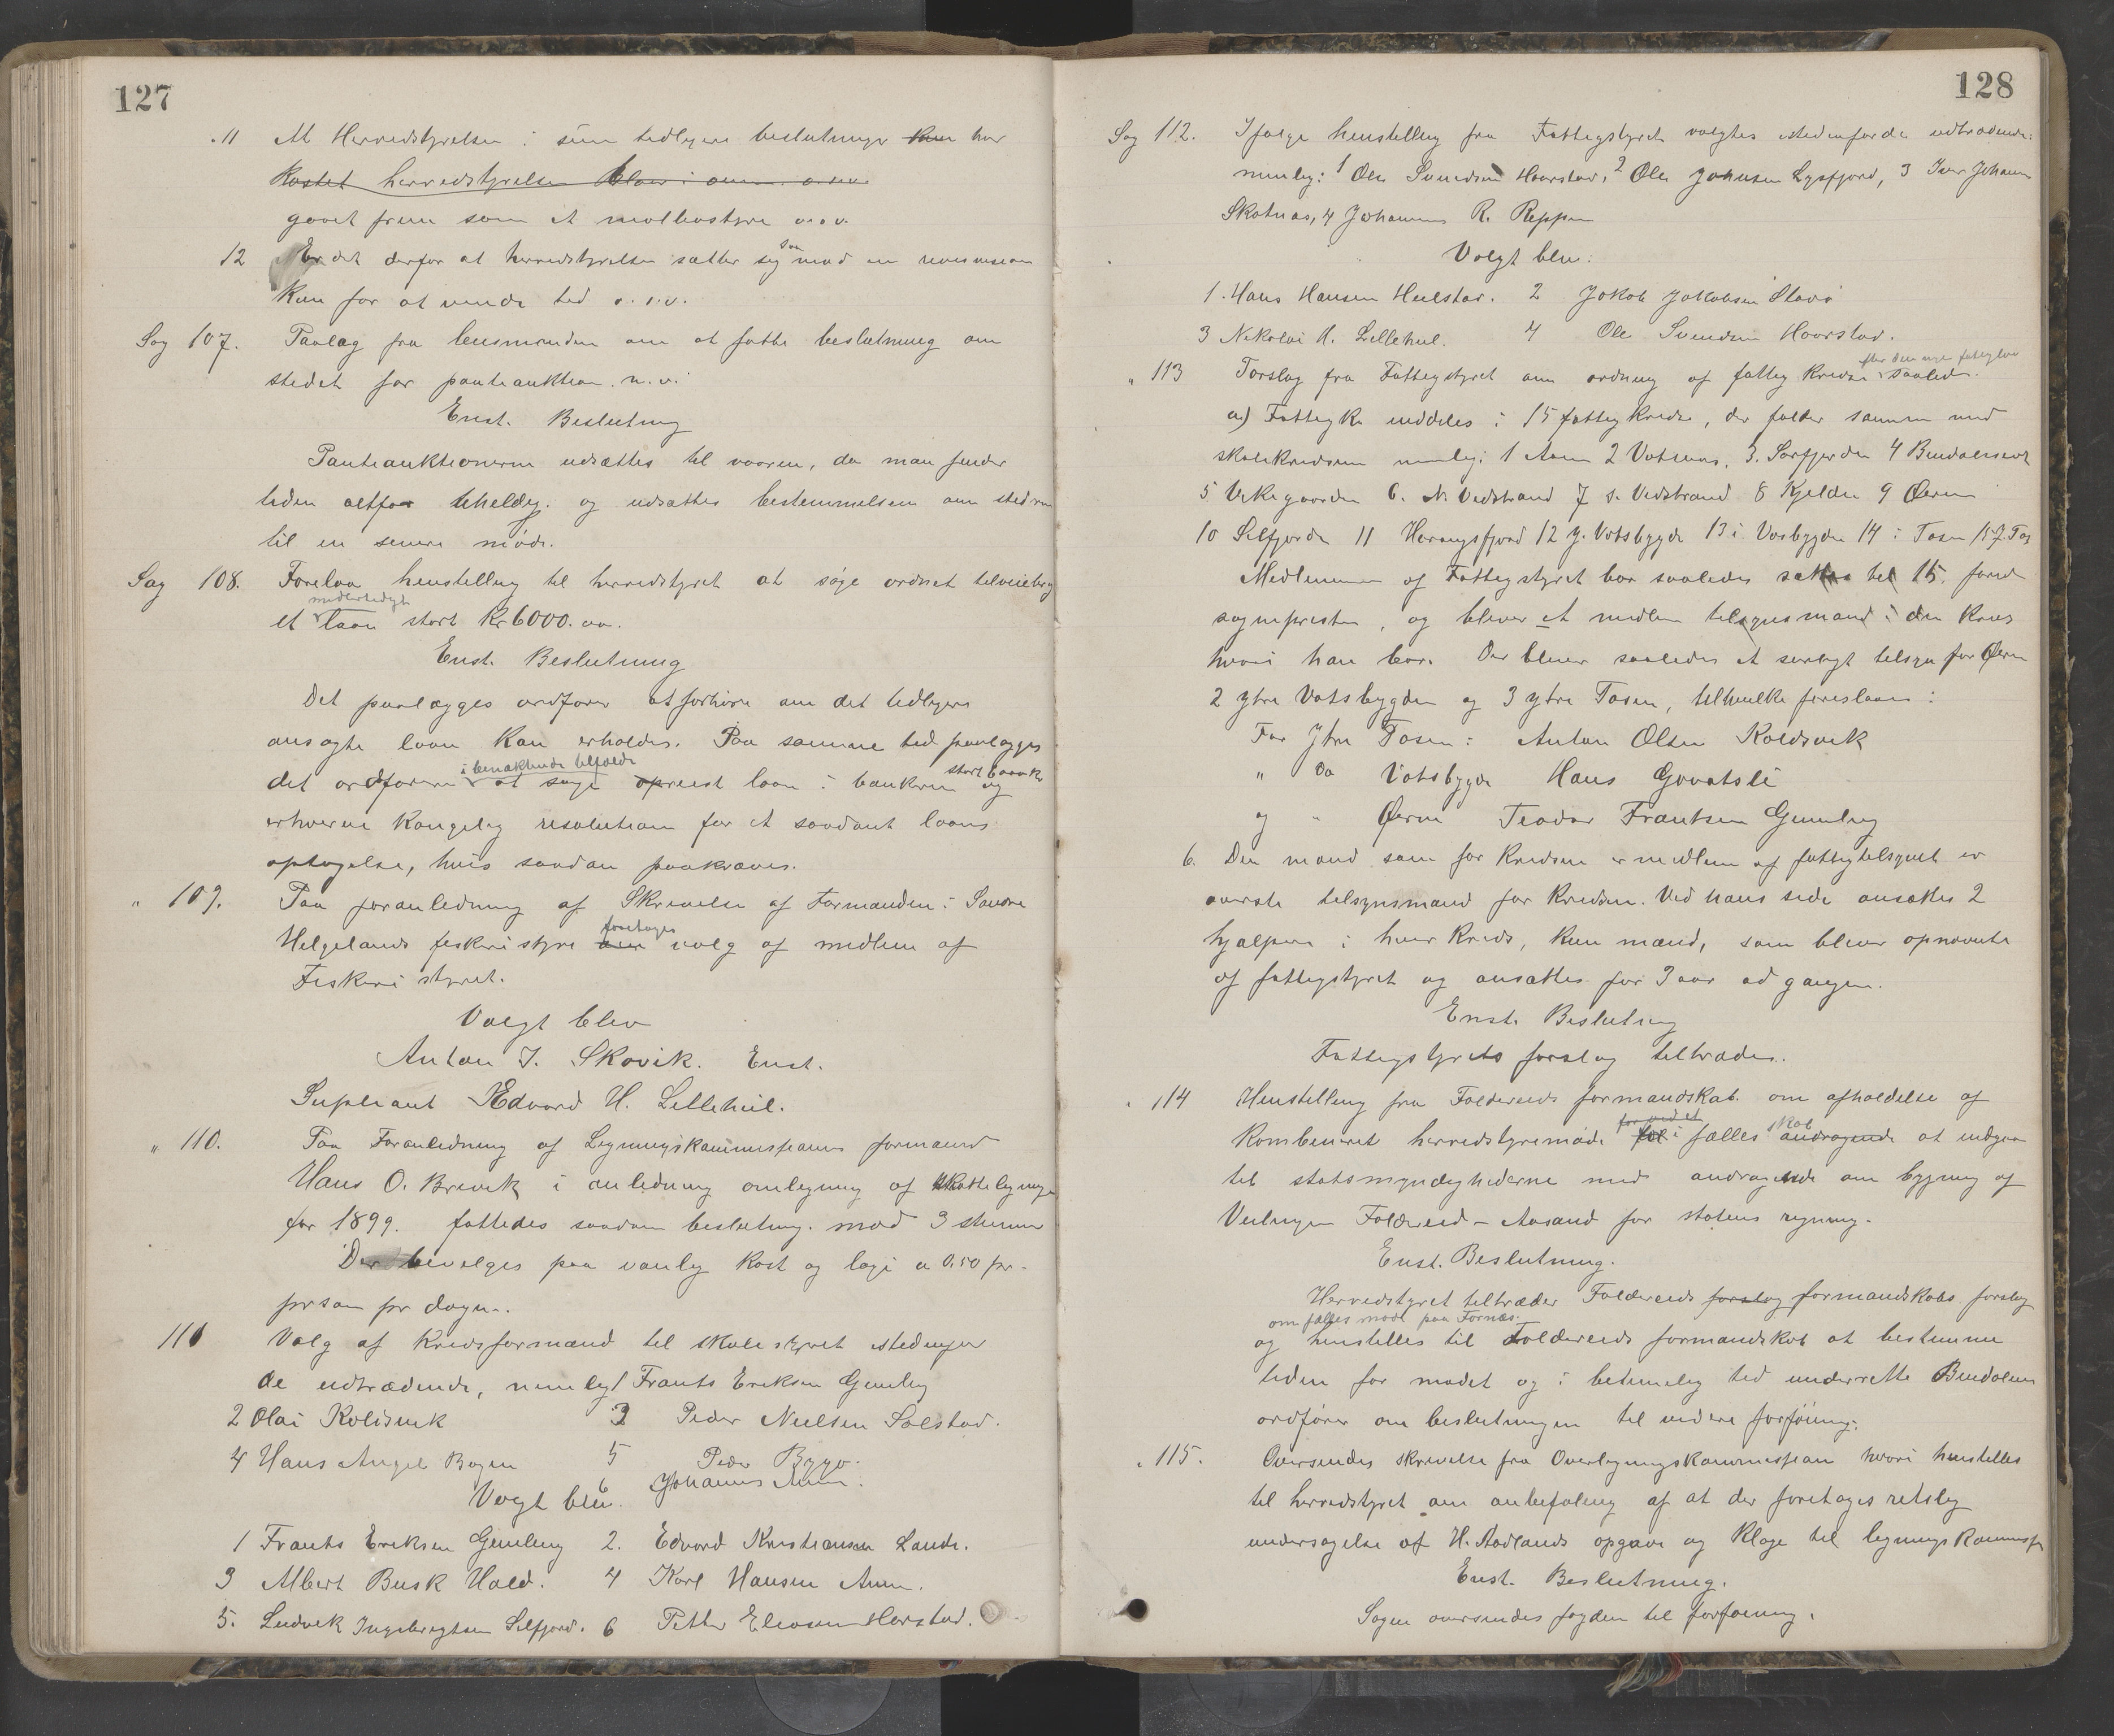 127
11 At Herredstyrelsen i sine tidligere beslutninger kun har
kastet herredstyrelsen
gaaet frem som et molbostyre o.s.v.
12 Er det derfor at herredstyrelsen sætter sig saa mod en revision
kun for at vinde tid o.s.v.
Sag 107. Paalæg fra lensmanden om at fatte beslutning om
stedet for panteauktion m.v.
Enst. Beslutning
Panteauktionerne udsættes til vaaren, da man finder
tiden altfor uheldig. og udsættes bestemmelsen om stederne
til en senere møde.
Sag 108. Forelaa henstilling til herredstyret at søge ordnet tilveiebrg
midlertidigt
et laan stort Kr 6000.00.
Enst. Beslutning
Det paalægges ordfører at forhøre om det tidligere
ansøgte laan kan erholdes. Paa samme tid paalægges
i benægtende tilfælde
det ordføreren at søge opreist laan i banken og
erhverve Kongelig resolution for et saadant laans
optagelse, hvis saadan paakræves.
" 109. Paa foranledning af Skrivelse af Formanden i Søndre
foretages
Helgelands fiskeristyre valg af medlem af
Fiskeristyret.
Valgt blev
Anton J. Skovik. Enst.
Supleant Edvard H. Lillehiil.
" 110. Paa Foranledning af Ligningskommissionens formand
Hans O. Brevik i anledning omligning af Skatteligningen
for 1899. fattedes saadan beslutning. mod 3 stemmer
Der bevilges paa vanlig Kost og logi a 0.50 pr.
prson pr døgn.
111 Valg af kredsformænd til skolestyret istedenfor
de udtrædende, nemlig 1 Frants Eriksen Gimling
2 Olai Kolisvik 3 Peder Nielsen Solstad.
4 Hans Angel Bogen 5 Peder Bygø.
Valgt blev. 6 Johannes Aum.
1 Frants Eriksen Gimling 2. Edvard Kristiansen Lande.
3 Albert Busk Hald. 4 Karl Hansen Aum.
5. Ludvik Ingebrigtsen Silfjord. 6 Petter Eliasen Horstad.
128
Sag 112. Ifølge henstilling fra Fattigstyret valgtes istedenfor de udtrædende:
nemlig: 1 Ole Svendsen Haarstad, 2 Ole Johnsen Lysfjord, 3 Iver Johann
Skotnes, 4 Johannes R. Reppen
Valgt blev:
1. Hans Hansen Hulstad. 2 Jakob Jakobsen
3 Nikolai H. Lillehiil. 4 Ole Svendsen Haarstad.
efter den nye fattiglov
" 113 Forslag fra Fattigstyret om ordning af fattig kredse saaledes.
a) Fattigk. inddeles i 15 fattigkredse, der falder sammen med
skolekredsene nemlig: 1 Aum 2 Vatsaas, 3. Sørfjorden 4 Bindalseidet
5 Vikgaarden 6. N. Vedstrand 7 s. Vedstrand 8 Kjelden 9 Øerne
10 Silfjorden 11 Harangsfjord 12 y. Vatsbygde 13 i. Vasbygden 14 i Tosen 15 y. Tos
Medlemmer af Fattigstyret bør saaledes sættes til 15. foruden
sognepresten, og bliver et medlem tilsynsmand i den kreds
hvori han bor. Der bliver saaledes et særligt tilsyn for Øerne
2 ytre Vatsbygden og 3 ytre Tosen, til hvilke foreslaaes:
For Ytre Tosen: Anton Olsen Koldsvik
" Do Vatsbygde Hans Govatsli
og " Øerne Teodor Frantsen Gimling
6. Den mand som for kredsen er medlem af fattigtilsynet er
øverste tilsynsmand for kredsen. Ved hans side ansættes 2
hjælpere i hver kreds, kun mænd, som bliver opnævnte
af fattigstyret og ansættes for 3 aar ad gangen.
Enst. Beslutning
Fattigstyrets forslag tiltrædes.
" 114 Henstilling fra Foldereids formandskab om afholdelse af
for ved et skab
kombineret herredstyremøde i fælles andragende at indgaa
til statsmyndighederne med andragende om bygning af
Veilinjen Foldereid – Aasand for statens regning.
Enst. Beslutning.
Herredstyret tiltræder Foldereids forslag formandskabs forslag
om fælles møde paa Fornes.
og henstilles til Foldereids formandskab at bestemme
tiden for mødet og i betimelig tid underrette Bindalens
ordfører om beslutningen til videre forføining.
" 115. Oversendes skrivelse fra Overligningskommissjon hvori henstilles
til herredstyret om anbefaling af at der foretages retslig
undersøgelse af H. Aadlands opgave og klage til ligningskommissj
Enst. Beslutning.
Sagen oversendes fogden til forføining.